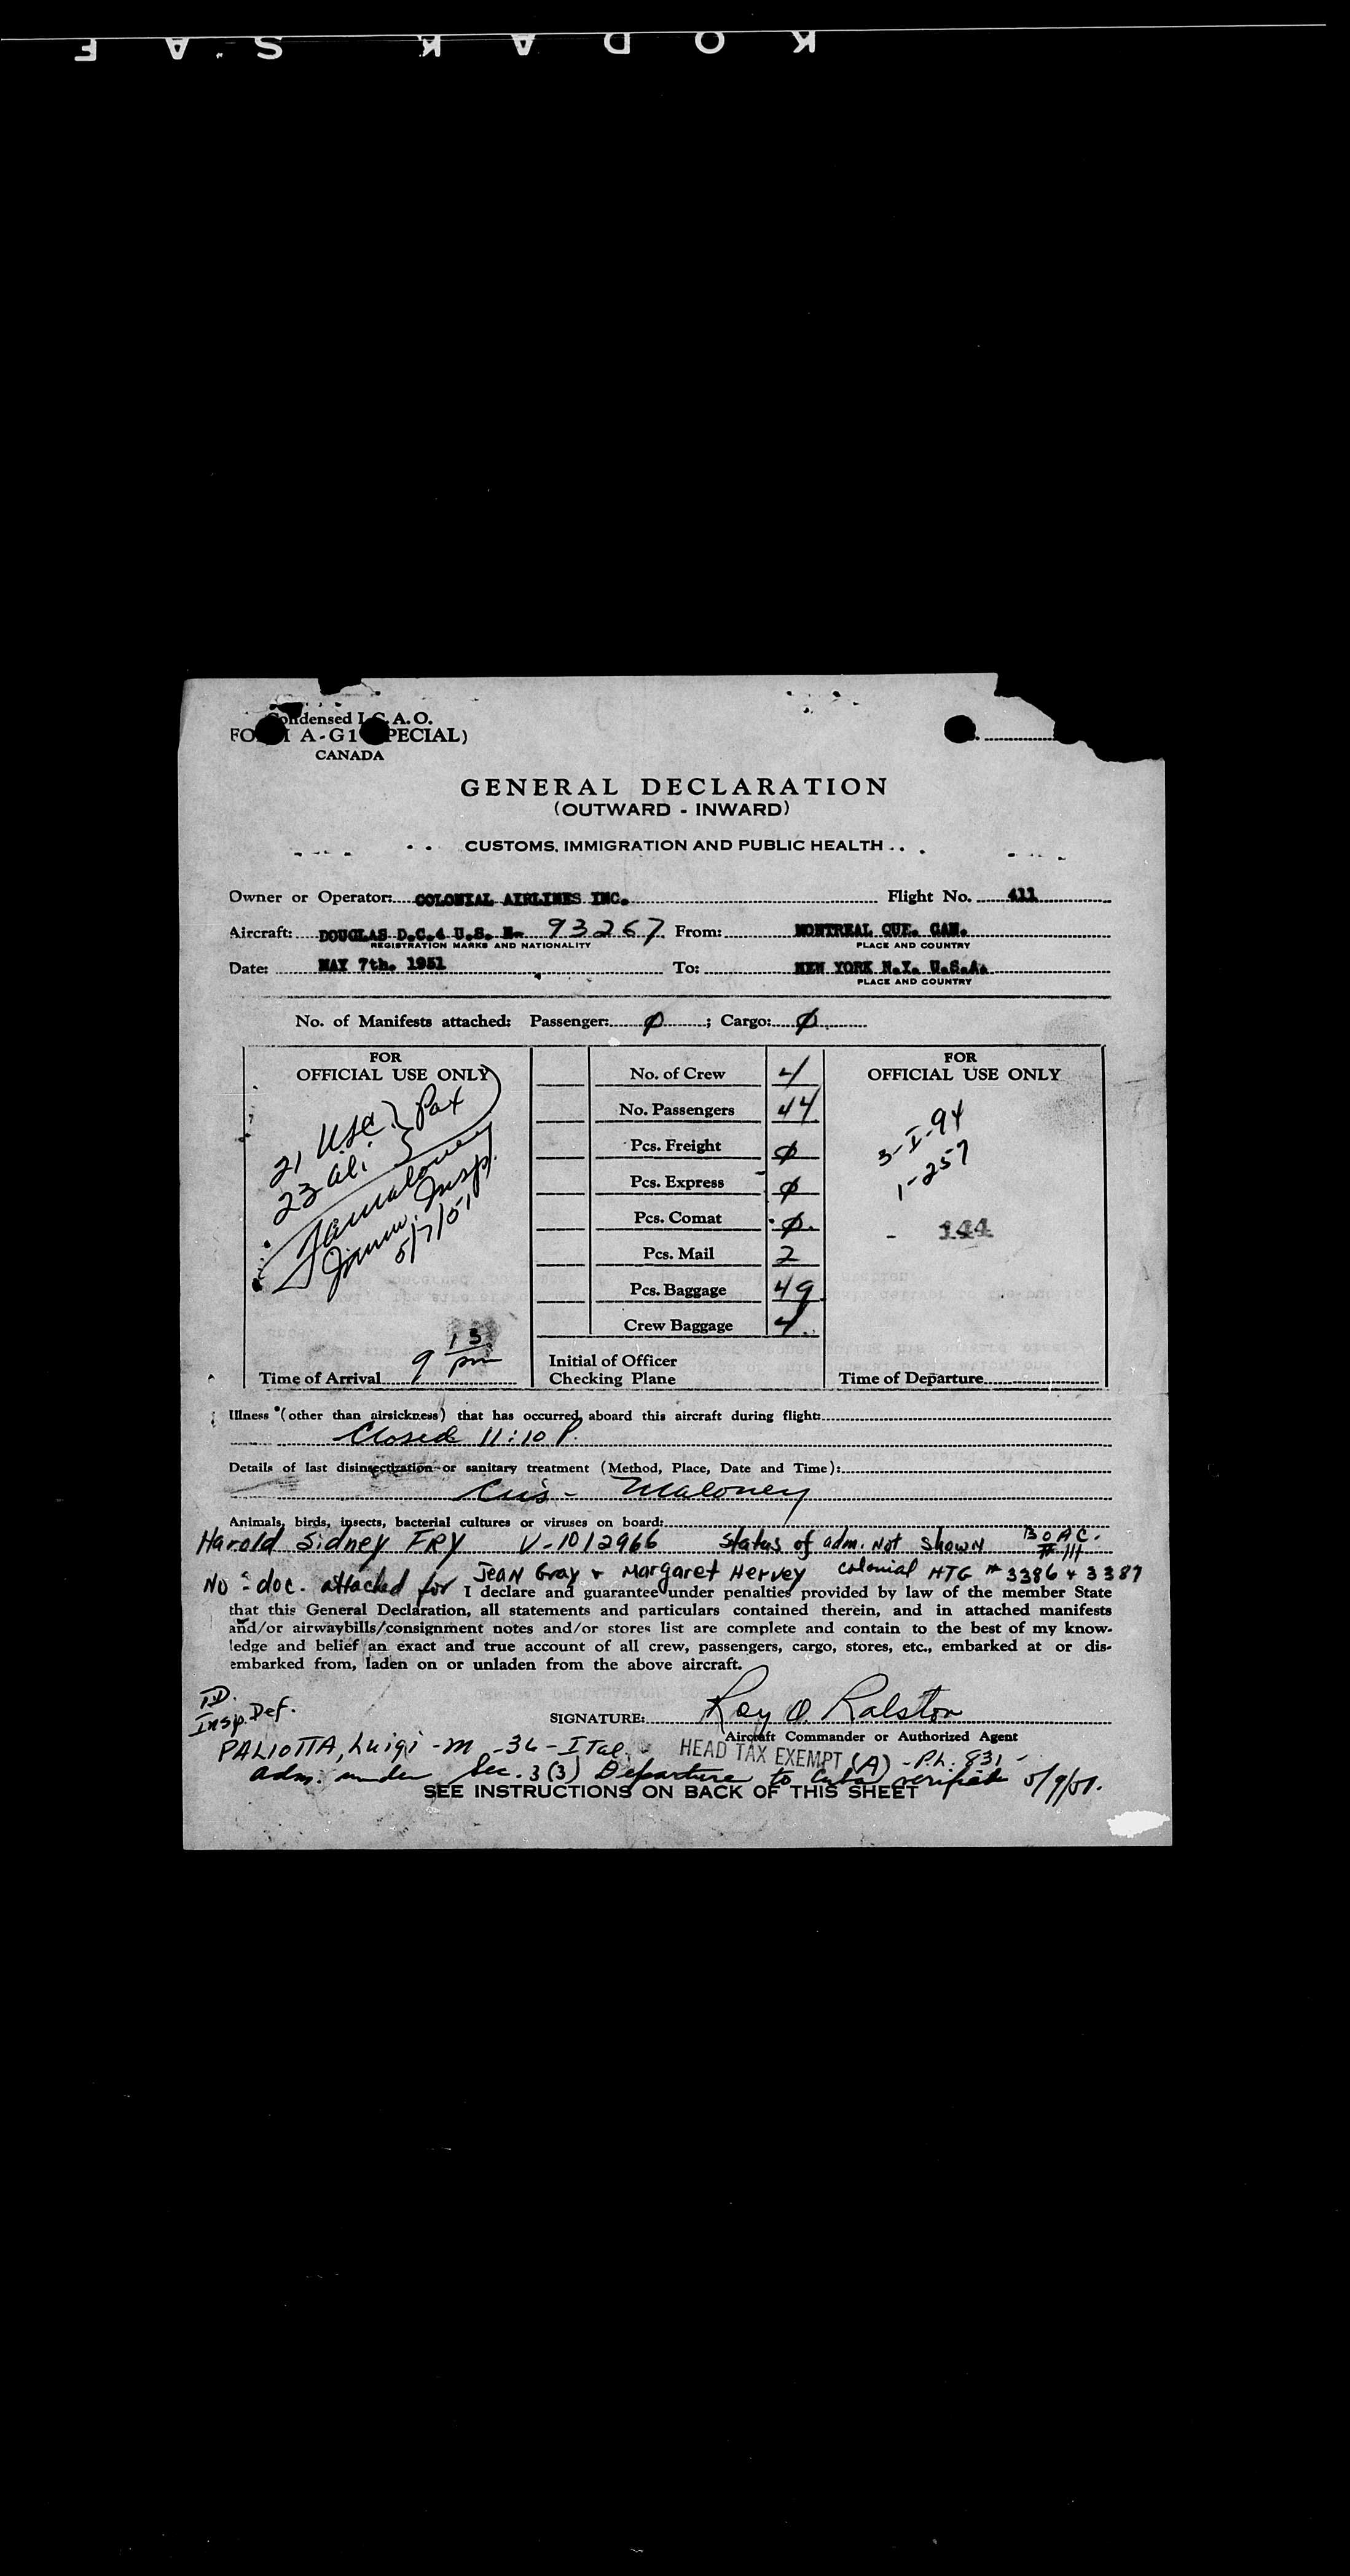 KODAK SAF
Condensed I.C.A.O.
FORM A-G1 (SPECIAL)
CANADA
GENERAL DECLARATION
(OUTWARD - INWARD)
CUSTOMS, IMMIGRATION AND PUBLIC HEALTH
Owner or Operator: COLONIAL AIRLINES INC. Flight No. 411
Aircraft: DOUGLAS D.C.4 U.S. N- 93267 From: MONTREAL QUE. CAN.
REGISTRATION MARKS AND NATIONALITY PLACE AND COUNTRY
Date: MAY 7th. 1951 To: NEW YORK N.Y. U.S.A.
PLACE AND COUNTRY
No. of Manifests attached: Passenger: 0; Cargo: 0
FOR
OFFICIAL USE ONLY
21 USC } Pax
23 al.
Maloney
Immi. Insp.
5/7/51
9 13 pm
Time of Arrival
No. of Crew 4
No. Passengers 44
Pcs. Freight 0
Pcs. Express 0
Pcs. Comat 0
Pcs. Mail 2
Pcs. Baggage 49
Crew Baggage 4
Initial of Officer
Checking Plane
FOR
OFFICIAL USE ONLY
3-I-94
1-257
- 144
Time of Departure
Illness (other than airsickness) that has occurred aboard this aircraft during flight:
Closed 11:10 P.
Details of last disinsectization or sanitary treatment (Method, Place, Date and Time):
Maloney
Animals, birds, insects, bacterial cultures or viruses on board:
Harold Sidney FRY V-1012966 Status of adm. not shown BOAC.
No doc. attached for Jean Gray + Margaret Hervey Colonial MTG # 3386 + 3387
I declare and guarantee under penalties provided by law of the member State
that this General Declaration, all statements and particulars contained therein, and in attached manifests
and/or airwaybills/consignment notes and/or stores list are complete and contain to the best of my know-
ledge and belief an exact and true account of all crew, passengers, cargo, stores, etc., embarked at or dis-
embarked from, laden on or unladen from the above aircraft.
I.D.
Insp. Def.
SIGNATURE: Roy O. Ralston
Aircraft Commander or Authorized Agent
PALIOTTA, Luigi - m - 36 - Ital. HEAD TAX EXEMPT (A) - P.L. 831 -
adm. under Sec. 3(3) Departure to Cuba verified 5/9/51.
SEE INSTRUCTIONS ON BACK OF THIS SHEET